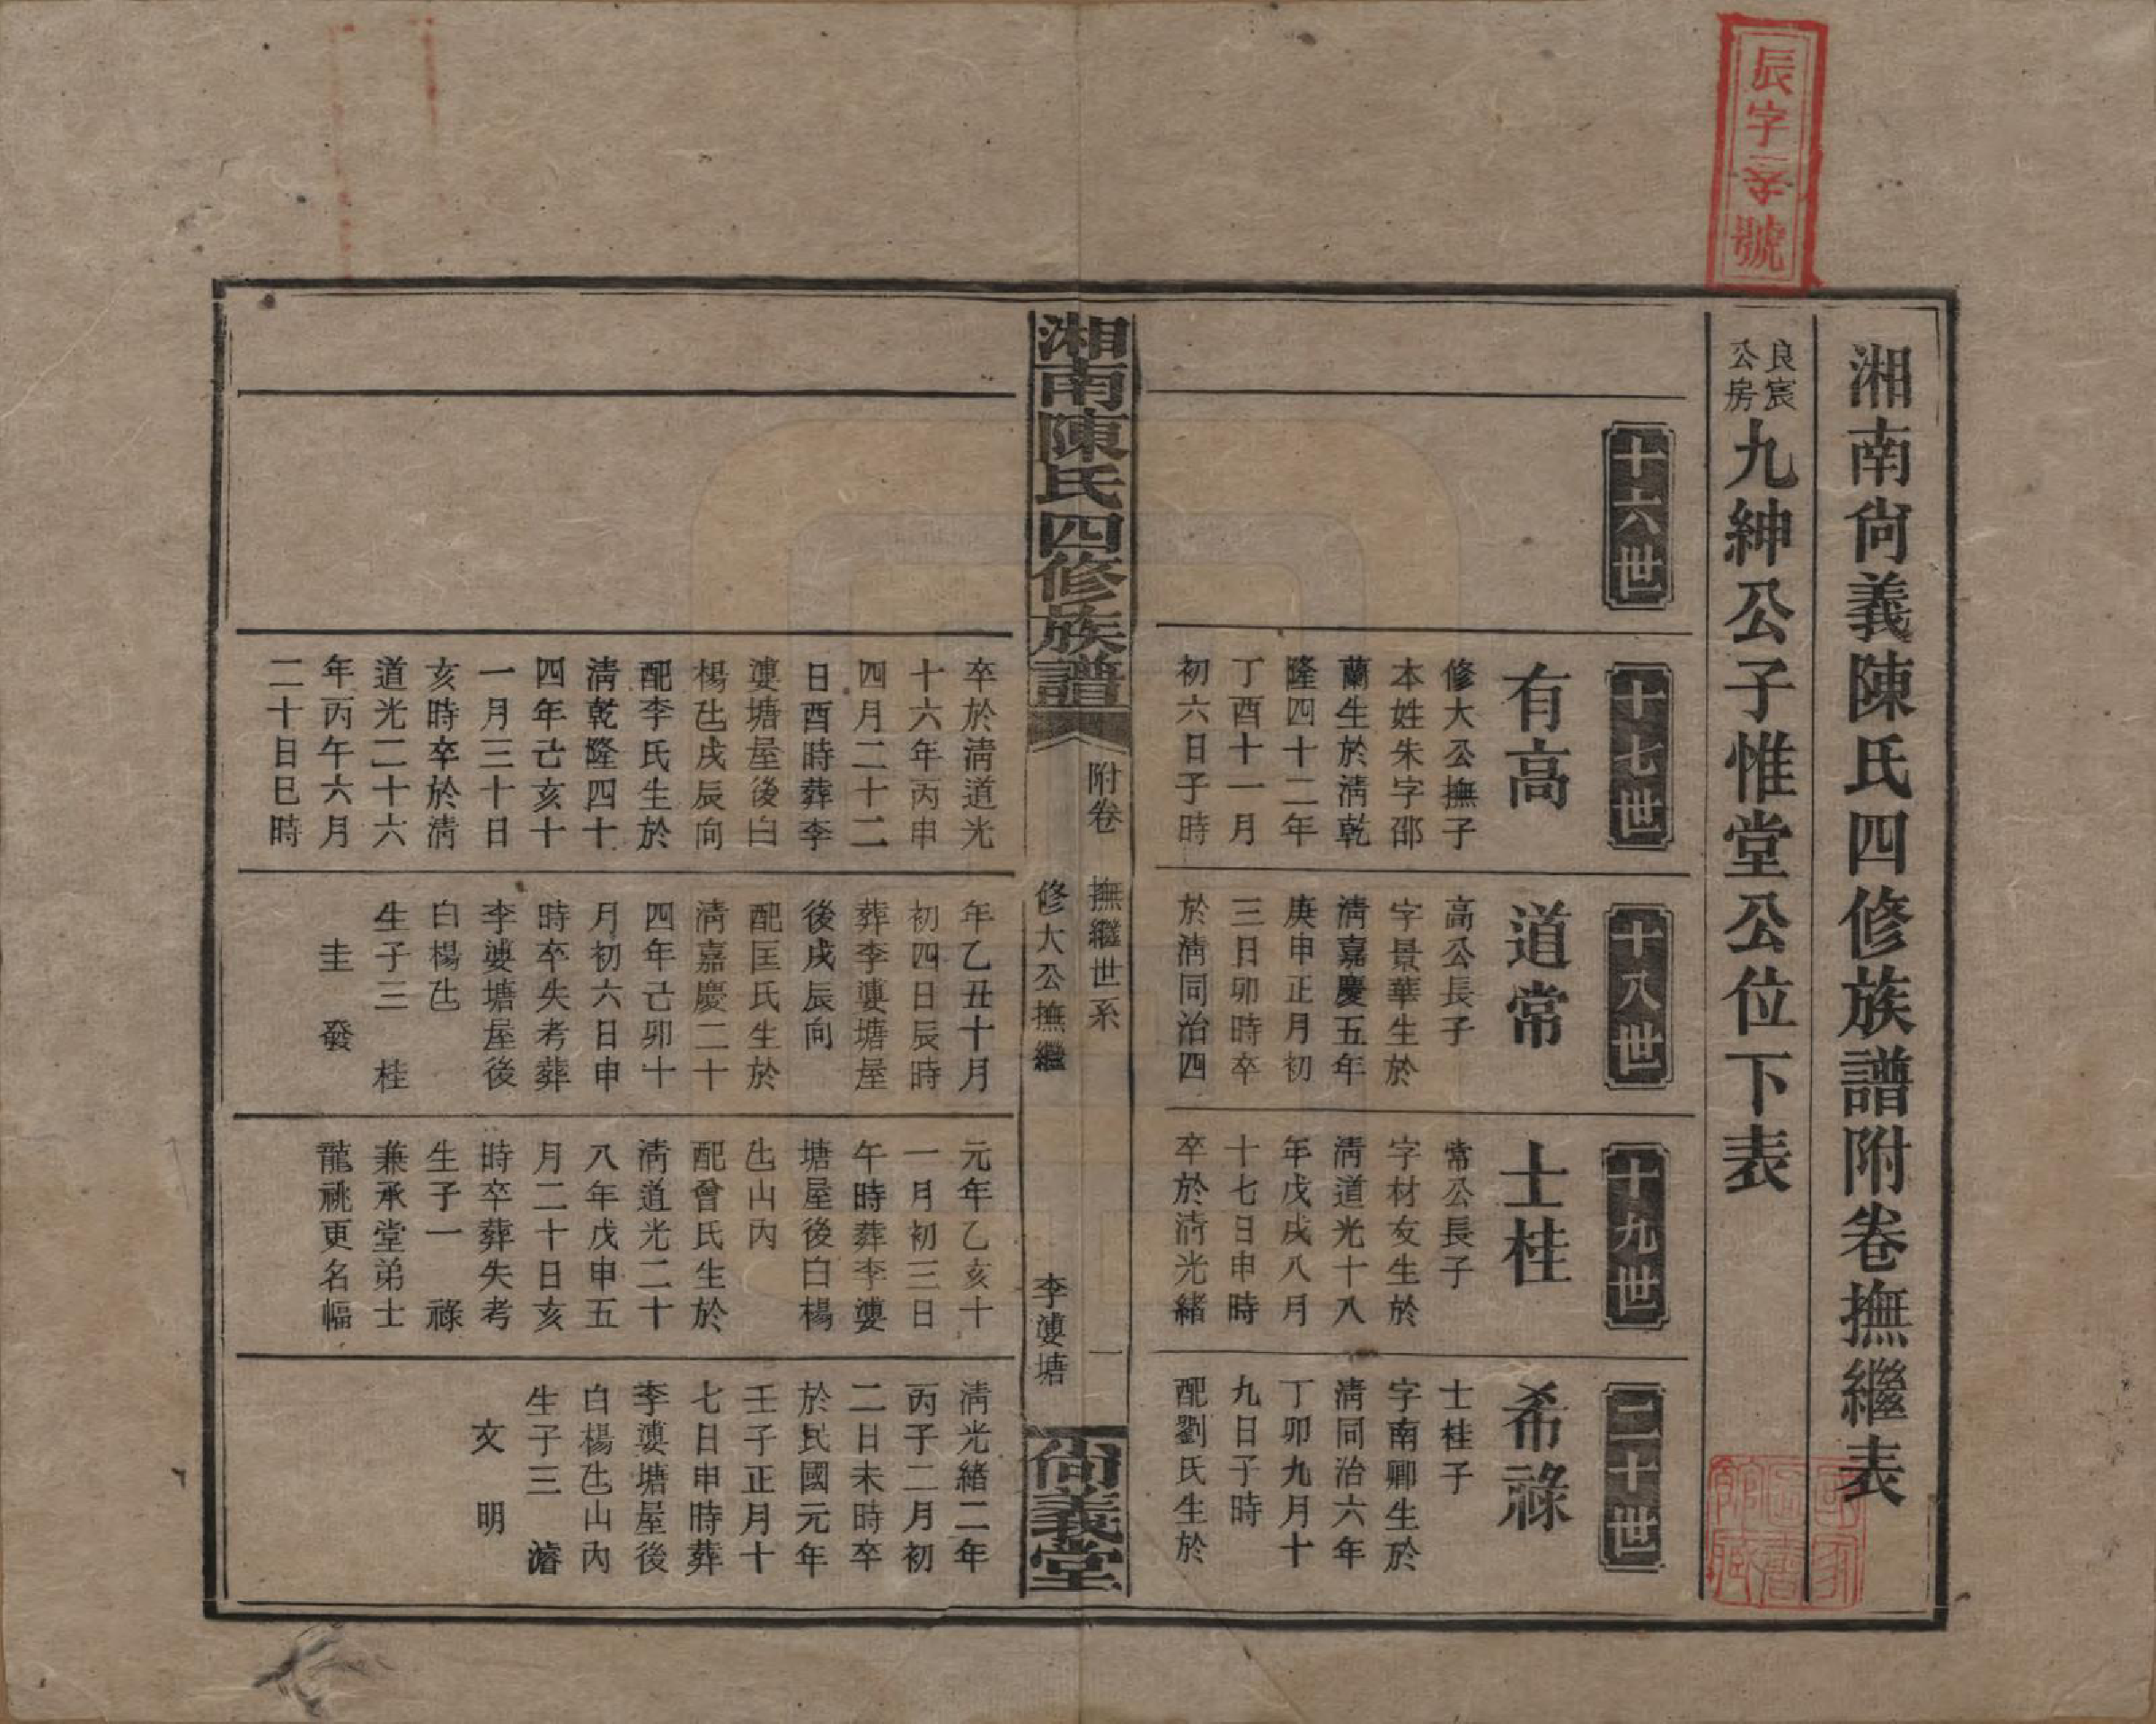 辰字號
湘南尙義陳氏四修族譜附卷撫繼表
良宸公房九紳公子惟堂公位下表
十六世
十七世
有高
修大公撫子
本姓朱字邵
蘭生於淸乾
隆四十二年
丁酉十一月
初六日子時
十八世
道常
高公長子
字景華生於
淸嘉慶五年
庚申正月初
三日卯時卒
於淸同治四
十九世
士桂
常公長子
字材友生於
淸道光十八
年戊戌八月
十七日申時
卒於淸光緒
二十世
希祿
士桂子
字南卿生於
淸同治六年
丁卯九月十
九日子時
配劉氏生於
湘南陳氏四修族譜
附卷
撫繼世系
修大公撫繼
李漊塘
一
尙義堂
卒於淸道光
十六年丙申
四月二十二
日酉時葬李
漊塘屋後白
楊𠙶戌辰向
配李氏生於
淸乾隆四十
四年己亥十
一月三十日
亥時卒於淸
道光二十六
年丙午六月
二十日巳時
年乙丑十月
初四日辰時
葬李漊塘屋
後戌辰向
配匡氏生於
淸嘉慶二十
四年己卯十
月初六日申
時卒失考葬
李漊塘屋後
白楊𠙶
生子三 桂
圭 發
元年乙亥十
一月初三日
午時葬李漊
塘屋後白楊
𠙶山內
配曾氏生於
淸道光二十
八年戊申五
月二十日亥
時卒葬失考
生子一 祿
兼承堂弟士
龍祧更名幅
淸光緒二年
丙子二月初
二日未時卒
於民國元年
壬子正月十
七日申時葬
李漊塘屋後
白楊𠙶山內
生子三 濬
文 明